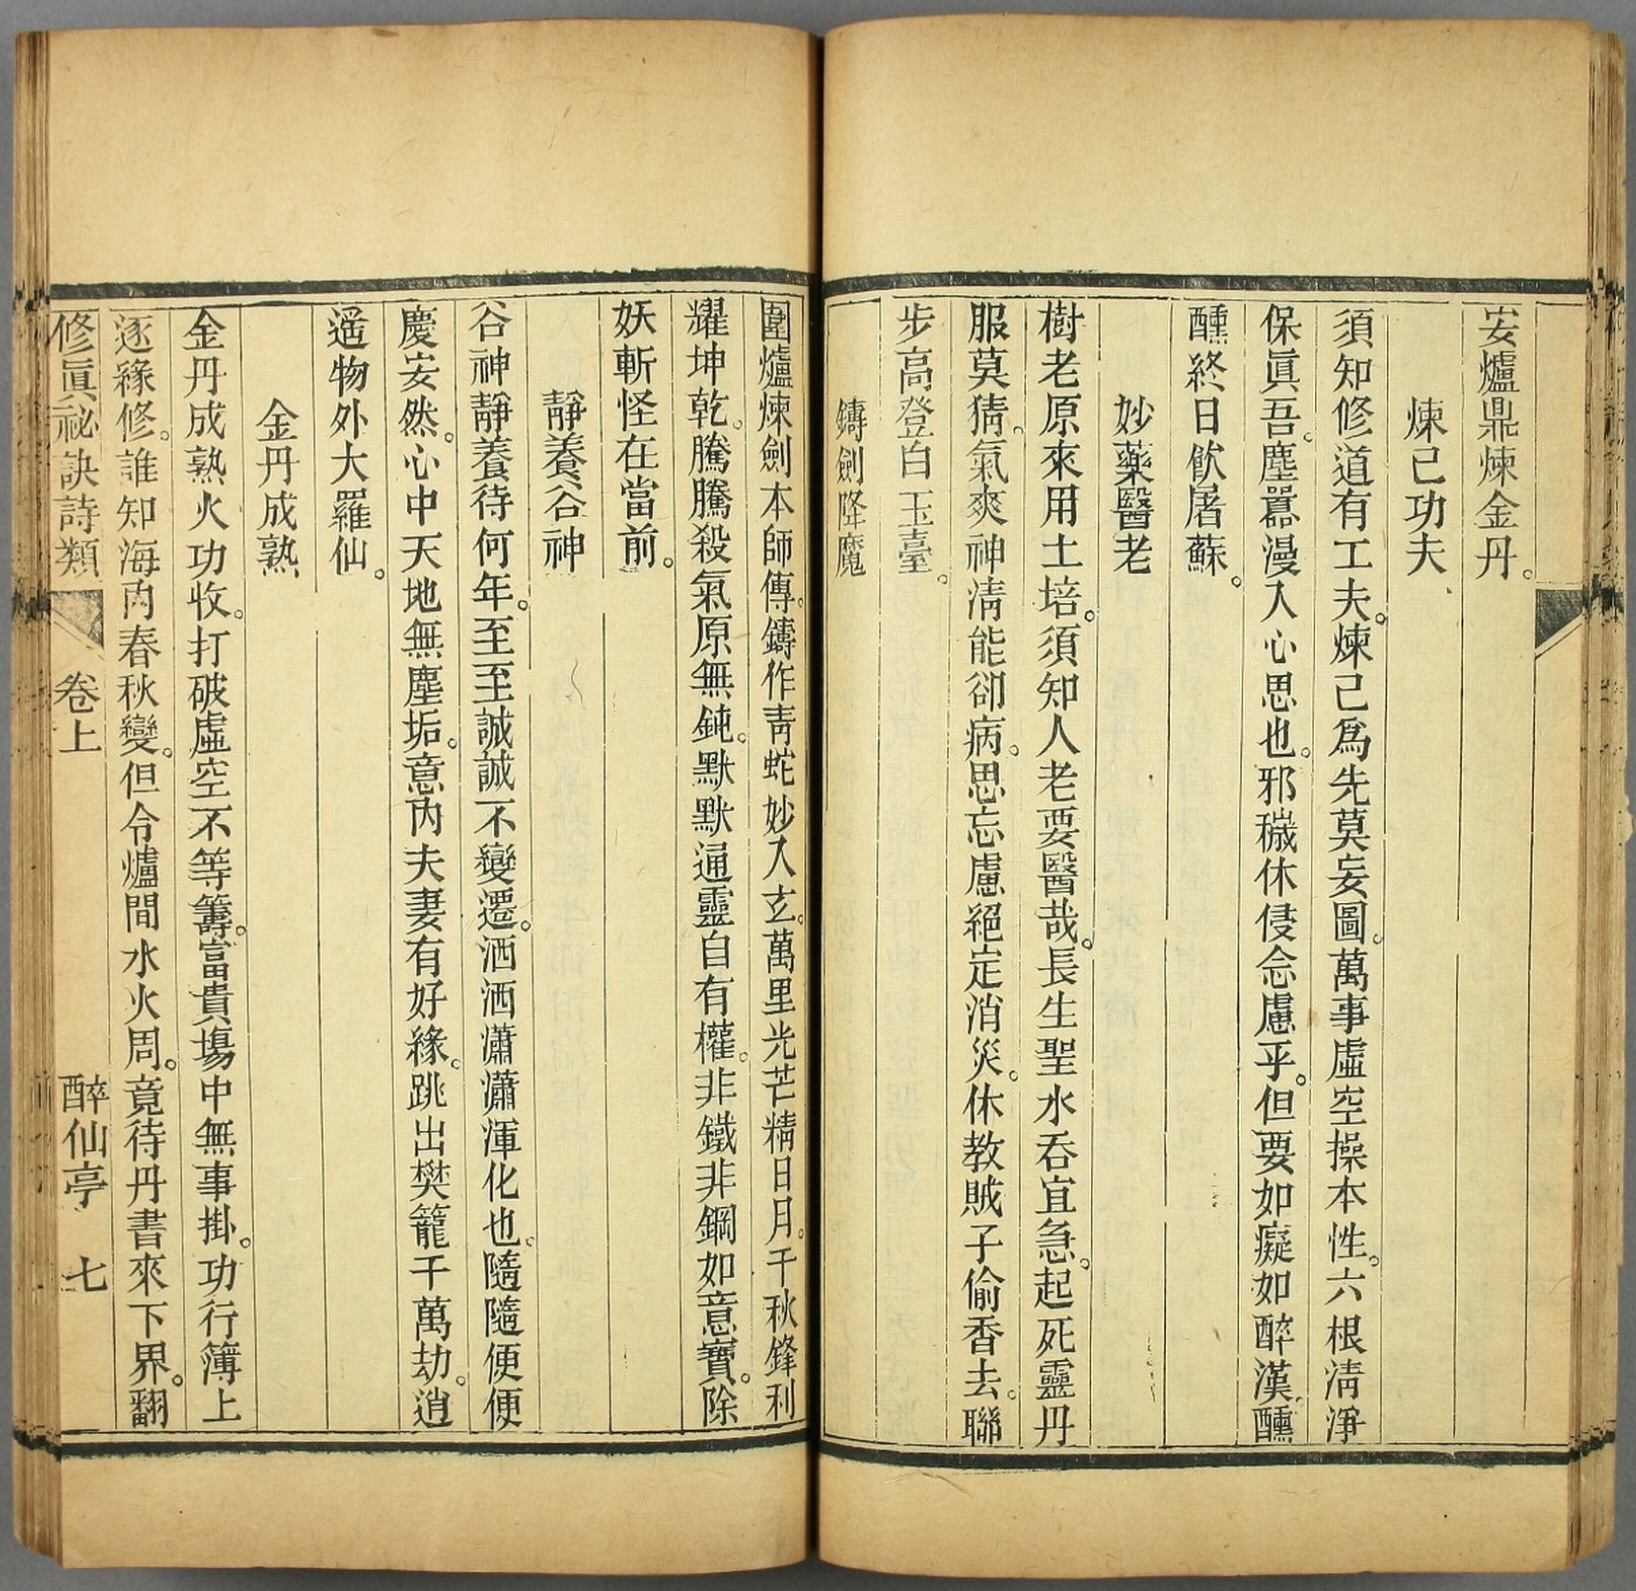 安爐鼎煉金丹。
煉己功夫
須知修道有工夫。煉己爲先莫妄圖。萬事虛空操本性。六根淸淨
保眞吾。塵囂漫入心思也。邪穢休侵念慮乎。但要如癡如醉漢。醺
醺終日飮屠蘇。
妙藥醫老
樹老原來用土培。須知人老要醫哉。長生聖水吞宜急。起死靈丹
服莫猜。氣爽神淸能卻病。思忘慮絕定消災。休教賊子偷香去。聯
步高登白玉臺。
鑄劍降魔
圍爐煉劍本師傳。鑄作靑蛇妙入玄。萬里光芒精日月。千秋鋒利
耀坤乾。騰騰殺氣原無鈍。默默通靈自有權。非鐵非鋼如意寶。除
妖斬怪在當前。
靜養谷神
谷神靜養待何年。至至誠誠不變遷。洒洒瀟瀟渾化也。隨隨便便
慶安然。心中天地無塵垢。意內夫妻有好緣。跳出樊籠千萬劫。逍
遥物外大羅仙。
金丹成熟
金丹成熟火功收。打破虛空不等籌。富貴場中無事掛。功行簿上
逐緣修。誰知海內春秋變。但令爐間水火周。竟待丹書來下界。翻
修眞祕訣詩類 卷上 醉仙亭 七